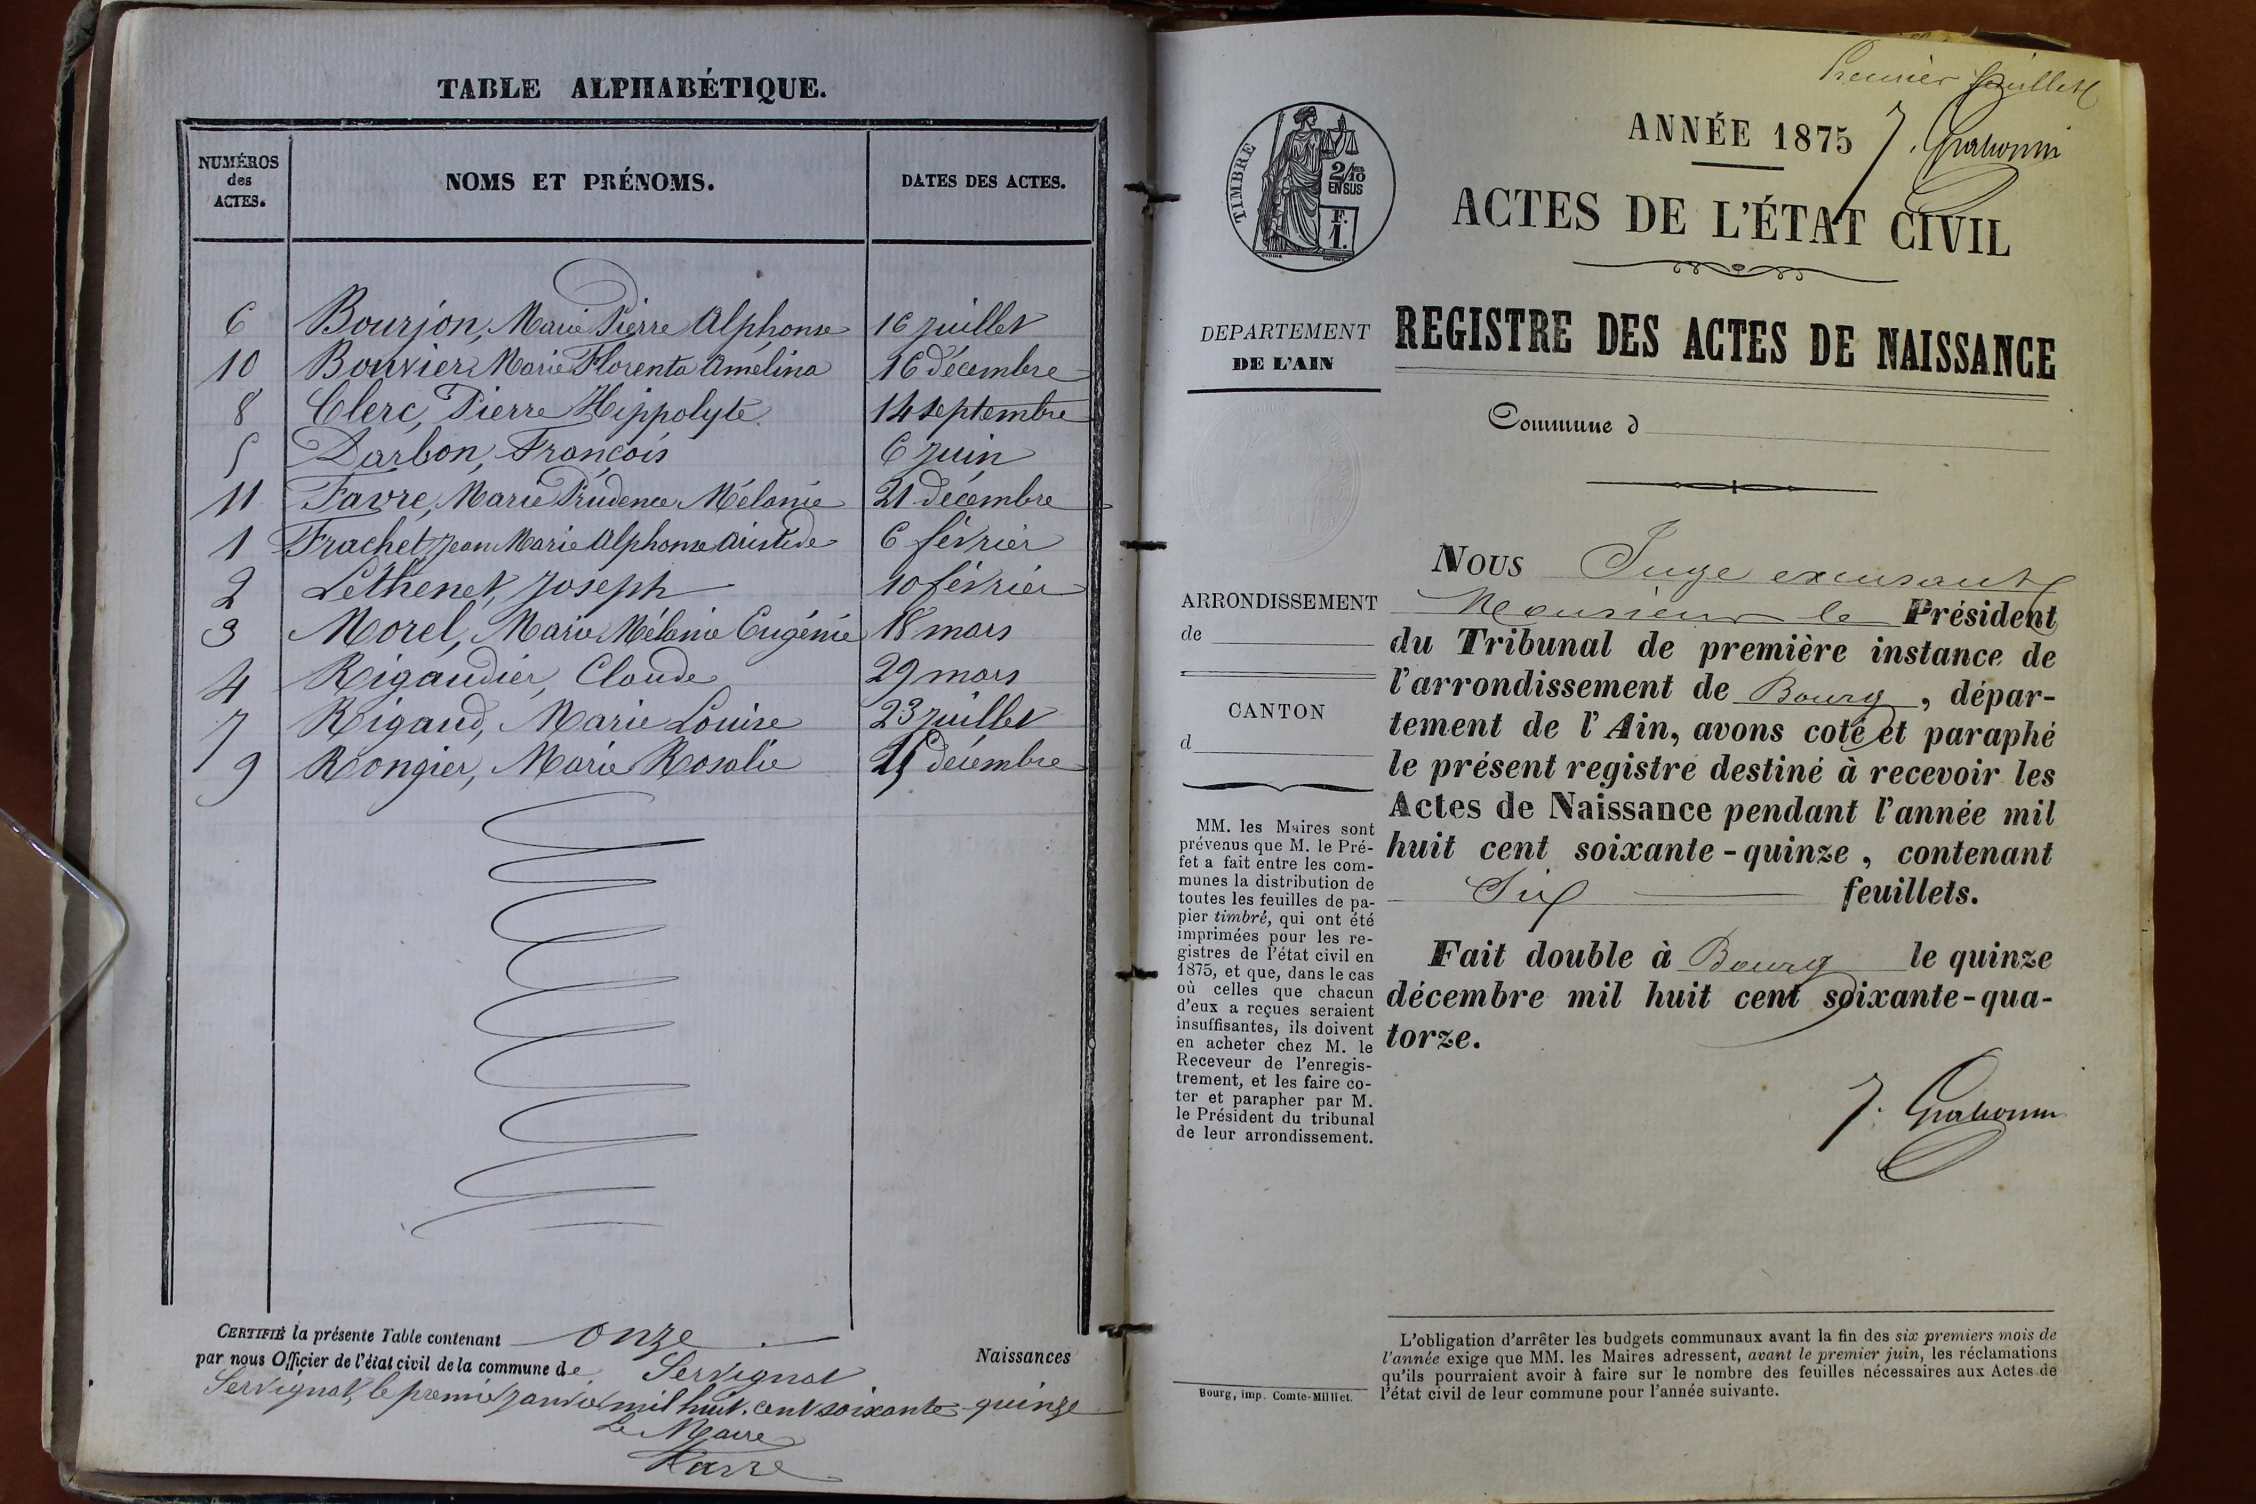 TABLE ALPHABÉTIQUE.
NUMÉROS des ACTES. NOMS ET PRÉNOMS. DATES DES ACTES.
6 Bourjon, Marie Pierre Alphonse 16 juillet
10 Bouvier Marie Florenta Amélina 16 décembre
8 Clerc, Pierre Hippolyte 14 septembre
5 Darbon, François 6 juin
11 Favre, Marie Prudence Mélanie 21 décembre
1 Frachet, Jean Marie Alphonse Aristide 6 février
2 Lethenet, Joseph 10 février
3 Morel, Marie Mélanie Eugénie 18 mars
4 Rigaudier, Claude 29 mars
7 Rigaud, Marie Louise 23 juillet
9 Rongier, Marie Rosalie décembre
CERTIFIÉ la présente Table contenant onze
par nous Officier de l'état civil de la commune de Servignat Naissances
Servignat, le premier janvier mil huit cent soixante-quinze
Le Maire
Premier feuillet
ANNÉE 1875
ACTES DE L'ÉTAT CIVIL
TIMBRE
2/10 EN SUS
F. 1.
DEPARTEMENT
DE L'AIN
REGISTRE DES ACTES DE NAISSANCE
Commune d
ARRONDISSEMENT
de
CANTON
d
MM. les Maires sont
prévenus que M. le Pré-
fet a fait entre les com-
munes la distribution de
toutes les feuilles de pa-
pier timbré, qui ont été
imprimées pour les re-
gistres de l'état civil en
1875, et que, dans le cas
où celles que chacun
d'eux a reçues seraient
insuffisantes, ils doivent
en acheter chez M. le
Receveur de l'enregis-
trement, et les faire co-
ter et parapher par M.
le Président du tribunal
de leur arrondissement.
Bourg, imp. Comte-Milliet.
NOUS Juge excusant
Monsieur le Président
du Tribunal de première instance de
l'arrondissement de Bourg, dépar-
tement de l'Ain, avons coté et paraphé
le présent registre destiné à recevoir les
Actes de Naissance pendant l'année mil
huit cent soixante-quinze, contenant
Six feuillets.
Fait double à Bourg le quinze
décembre mil huit cent soixante-qua-
torze.
L'obligation d'arrêter les budgets communaux avant la fin des six premiers mois de
l'année exige que MM. les Maires adressent, avant le premier juin, les réclamations
qu'ils pourraient avoir à faire sur le nombre des feuilles nécessaires aux Actes de
l'état civil de leur commune pour l'année suivante.